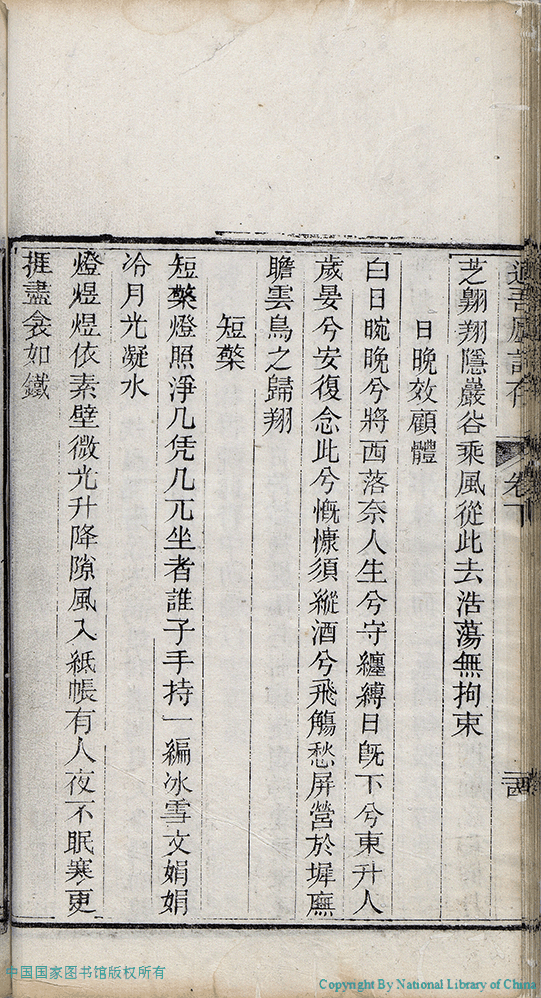 適吾廬詩存 卷下 西
芝翺翔隱巖谷乘風從此去浩蕩無拘束
日晚效顧體
白日晼晚兮將西落奈人生兮守纏縛日旣下兮東升人
歲晏兮安復念此兮慨慷須縱酒兮飛觴愁屏營於墀廡
瞻雲鳥之歸翔
短檠
短檠燈照淨几凭几兀坐者誰子手持一編冰雪文娟娟
冷月光凝水
燈煜煜依素壁微光升降隙風入紙帳有人夜不眠寒更
捱盡衾如鐵
中国国家图书馆版权所有
Copyright By National Library of China